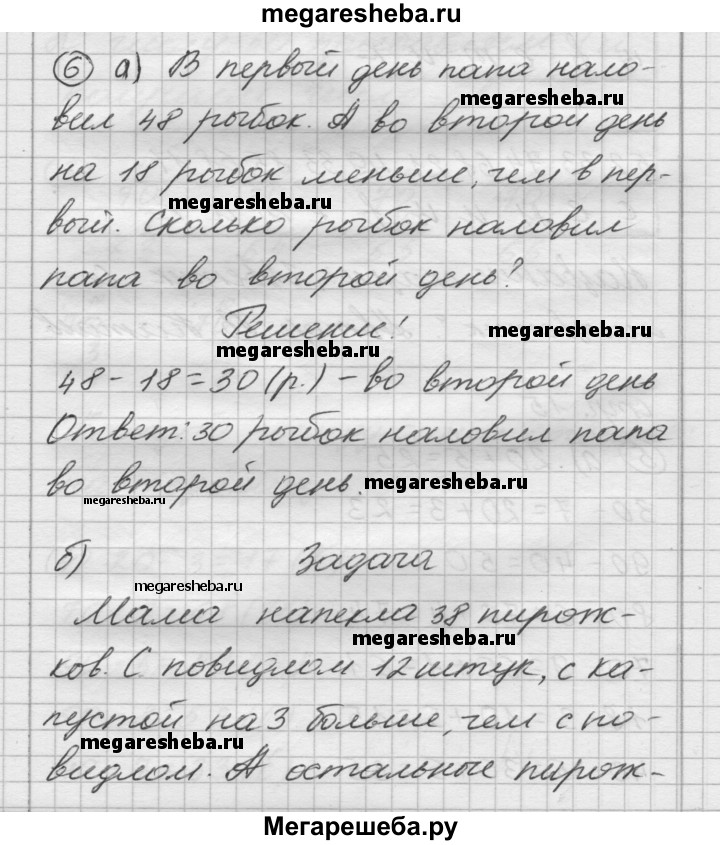 megaresheba.ru
6 а) В первый день папа нало-
megaresheba.ru
вил 48 рыбок. А во второй день
на 18 рыбок меньше, чем в пер-
megaresheba.ru
вый. Сколько рыбок наловил
папа во второй день?
Решение!
megaresheba.ru
megaresheba.ru
48 - 18 = 30 (р.) - во второй день
Ответ: 30 рыбок наловил папа
во второй день.
megaresheba.ru
megaresheba.ru
б) Задача
megaresheba.ru
Мама напекла 38 пирож-
megaresheba.ru
ков. С повидлом 12 штук, с ка-
пустой на 3 больше, чем с по-
megaresheba.ru
видлом. А остальные пирож-
Мегарешеба.ру